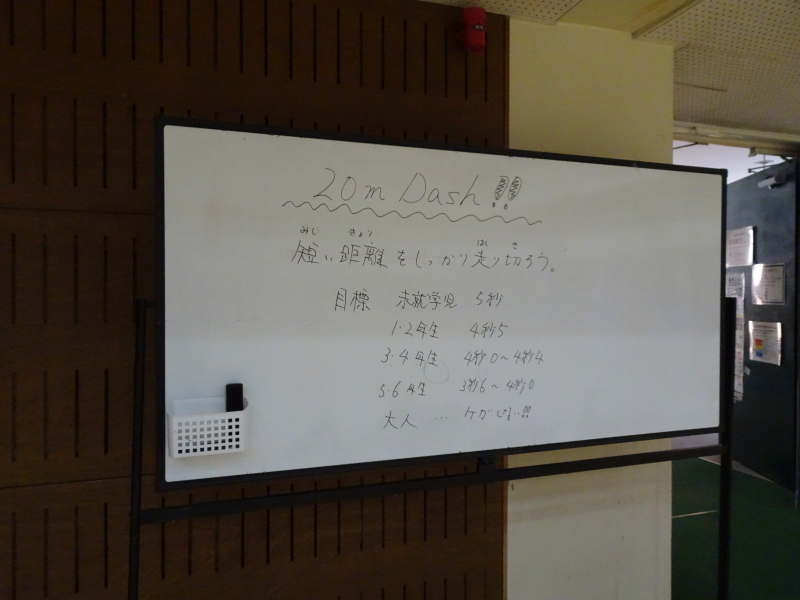 20m Dash!!
みじ きょり は き
短い距離をしっかり走り切ろう。
目標 未就学児 5秒
1・2年生 4秒5
3・4年生 4秒0～4秒4
5・6年生 3秒6～4秒0
大人 … ケガしない!!